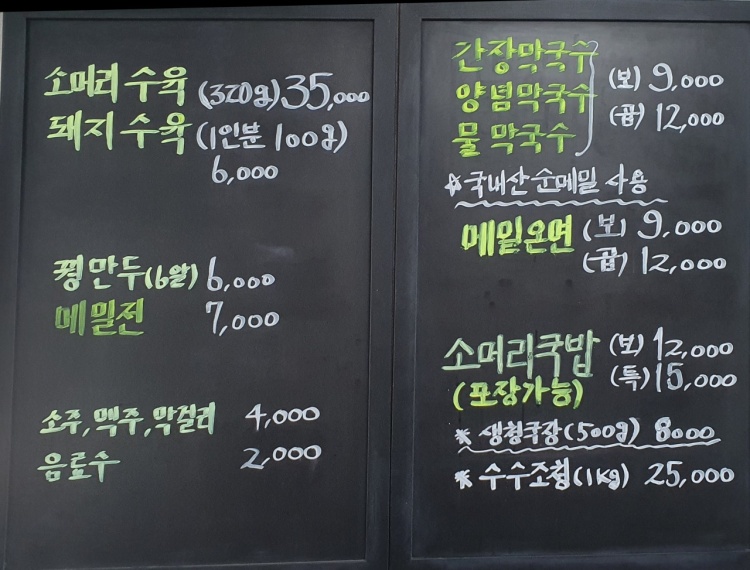 소머리 수육 (320g) 35,000
돼지 수육 (1인분 100g)
6,000
평만두 (6알) 6,000
메밀전 7,000
소주, 맥주, 막걸리 4,000
음료수 2,000
간장막국수
양념막국수
물 막국수
(보) 9,000
(곱) 12,000
☆ 국내산 순메밀 사용
메밀온면 (보) 9,000
(곱) 12,000
소머리국밥 (보) 12,000
(특) 15,000
(포장가능)
* 생청국장 (500g) 8000
* 수수조청 (1kg) 25,000